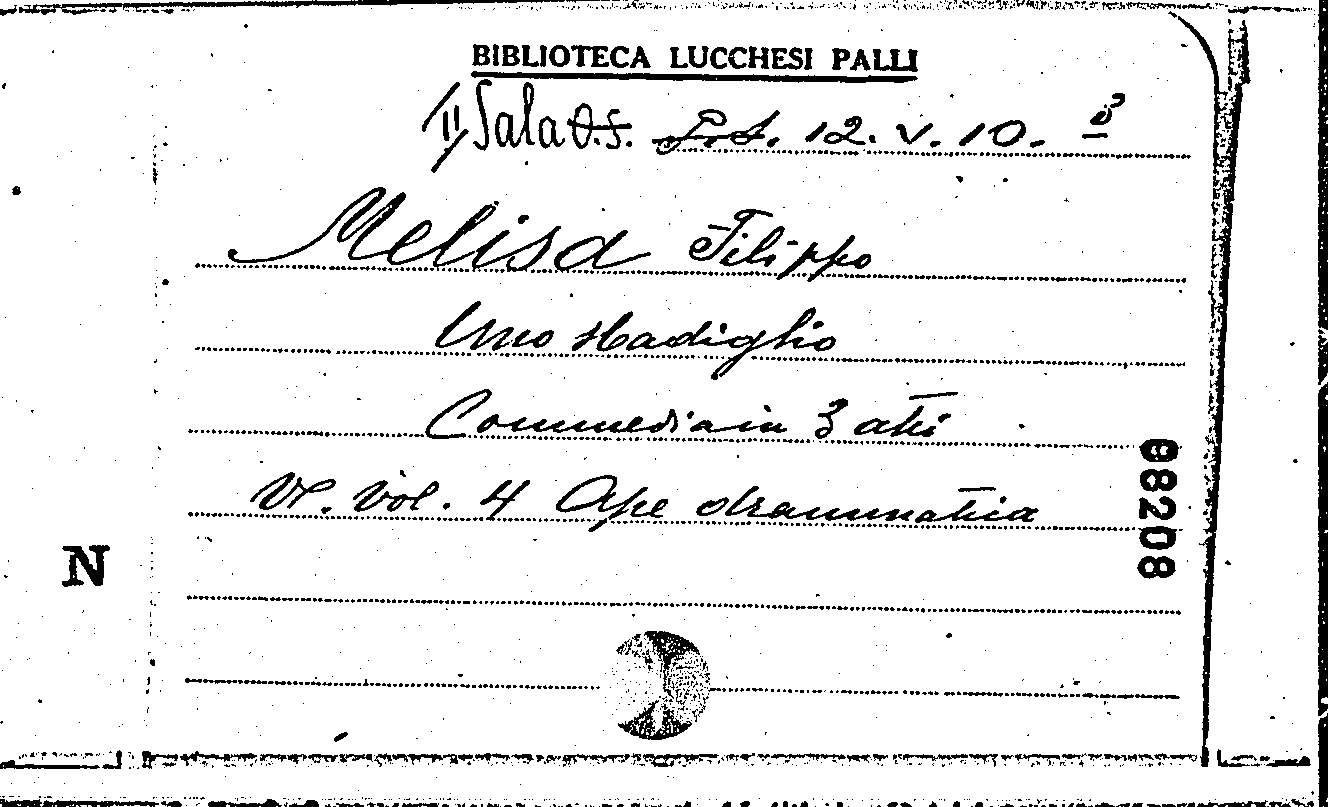 BIBLIOTECA LUCCHESI PALLI
II Sala O.S. P.t. 12. V. 10. 3
Melisa Filippo
Uno Stadiglio
Commedia in 3 atti
Vl. Vol. 4 Ape drammatica
N
08208